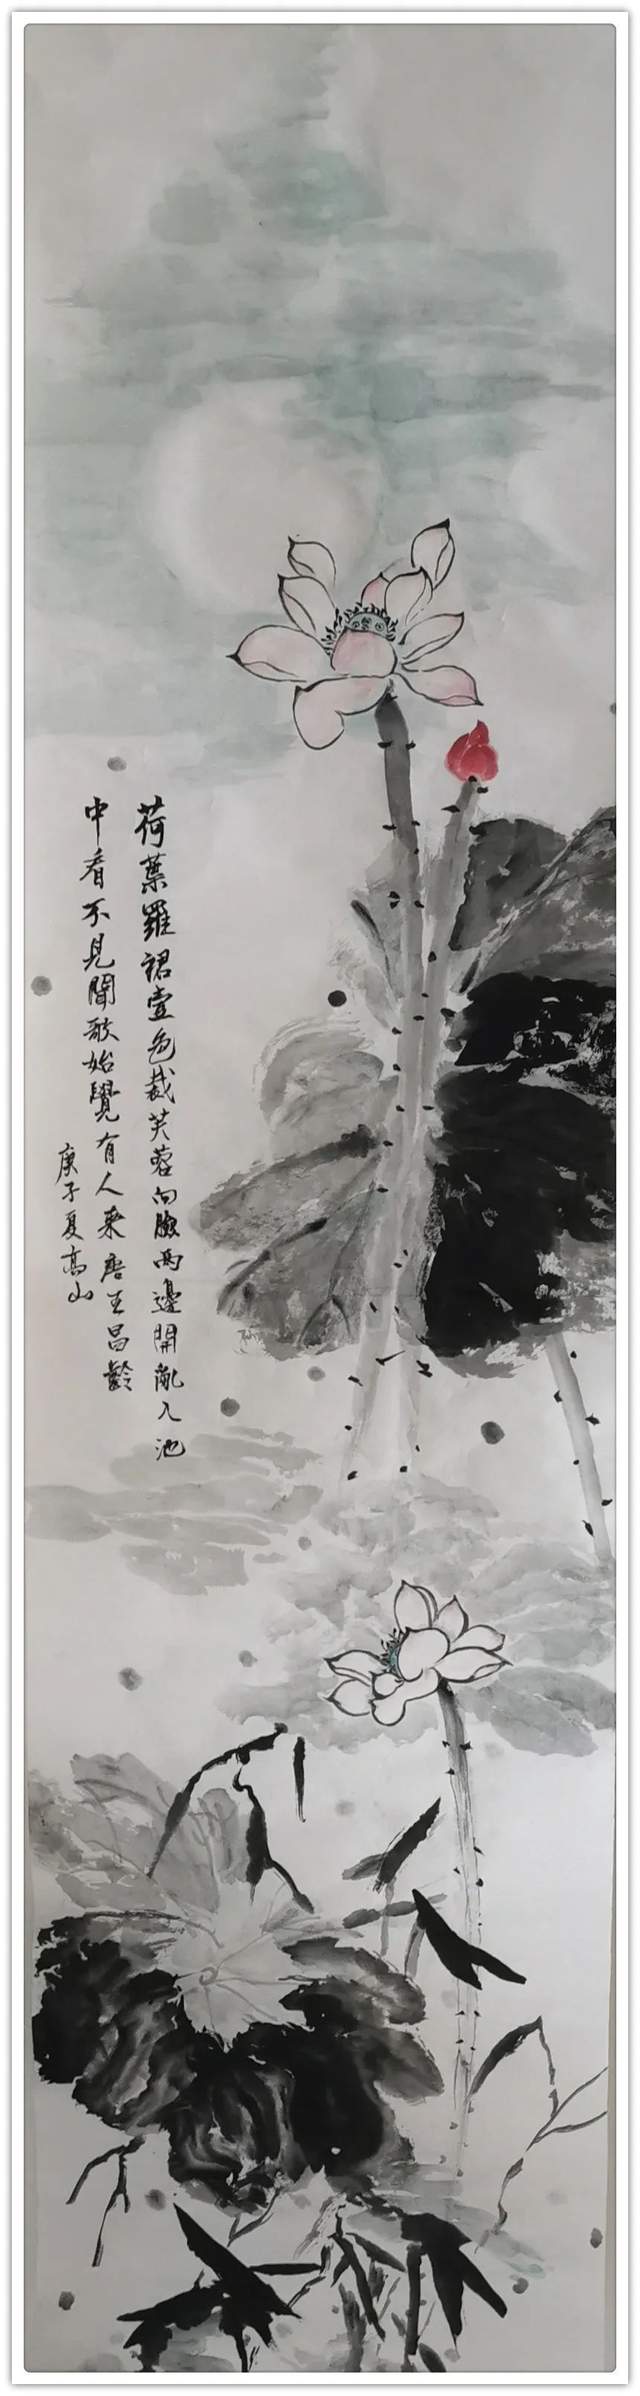 荷葉羅裙壹色裁芙蓉向臉兩邊開亂入池
中看不見聞歌始覺有人來唐王昌齡
庚子夏高山